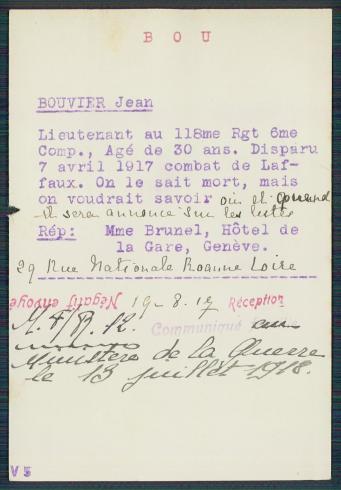 B O U
BOUVIER Jean
Lieutenant au 118me Rgt 6me
Comp., Agé de 30 ans. Disparu
7 avril 1917 combat de Laf-
faux. On le sait mort, mais
on voudrait savoir où et quand
il sera annoncé sur les listes
Rép: Mme Brunel, Hôtel de
la Gare, Genève.
29 Rue Nationale Roanne Loire
Négatif envoyé 19-8-17 Réception
12. Communiqué au
Ministère de la Guerre
le 13 juillet 1918.
V 5